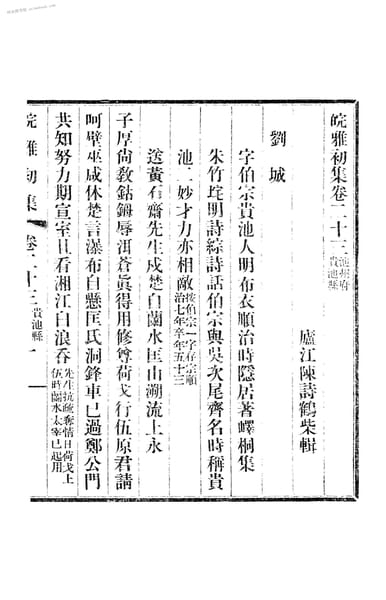 皖雅初集卷二十三池州府貴池縣
廬江陳詩鶴柴輯
劉城
字伯宗貴池人明布衣順治時隱居著嶧桐集
朱竹垞明詩綜詩話伯宗與吳次尾齊名時稱貴
池二妙才力亦相敵按伯宗一字存宗順治七年卒年五十三
送黃石齋先生戍楚自齒水匡山溯流上永
子厚尚敎鈷鉧辱洱蒼眞得用修尊荷戈行伍原君請
呵壁巫咸休楚言瀑布白懸匡氏洞鋒車已過鄭公門
共知努力期宣室且看湘江白浪呑先生抗疏奪情日荷戈上伍時齒水太宰已起用
皖雅初集 卷二十三 貴池縣 一